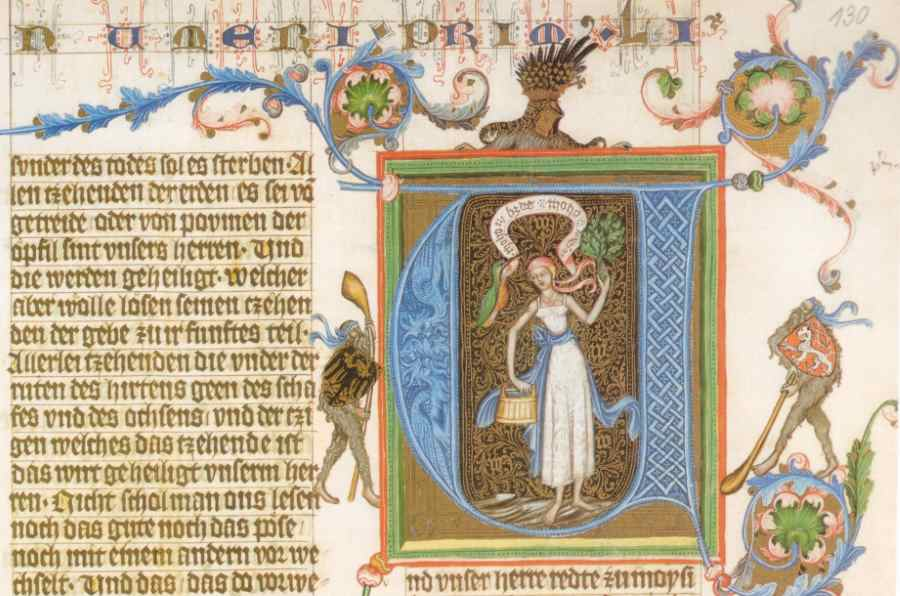 NUMERI·PRIMO·LI
130
sunder des todes sol es sterben· Al
len tzehenden der erden es sei vo
getreide oder von povmen der
opfil sint vnsers herren· Vnd
die werden geheiligt· welcher
aber wolle losen seinen tzehen
den der gebe zu ir funftes teil·
Allerlei tzehenden die vnder der
ruten des hirtens geen des scha
fes vnd des ochsens/ vnd der tzi
gen welches das tzehende ist
das wirt geheiligt vnserm her
ren· Nicht schol man ous lesen
noch das gute noch das pose/
noch mit einem andern vor we
chselt· Vnd das/ das do vorwe-
Und vnser herre redte zu moysi